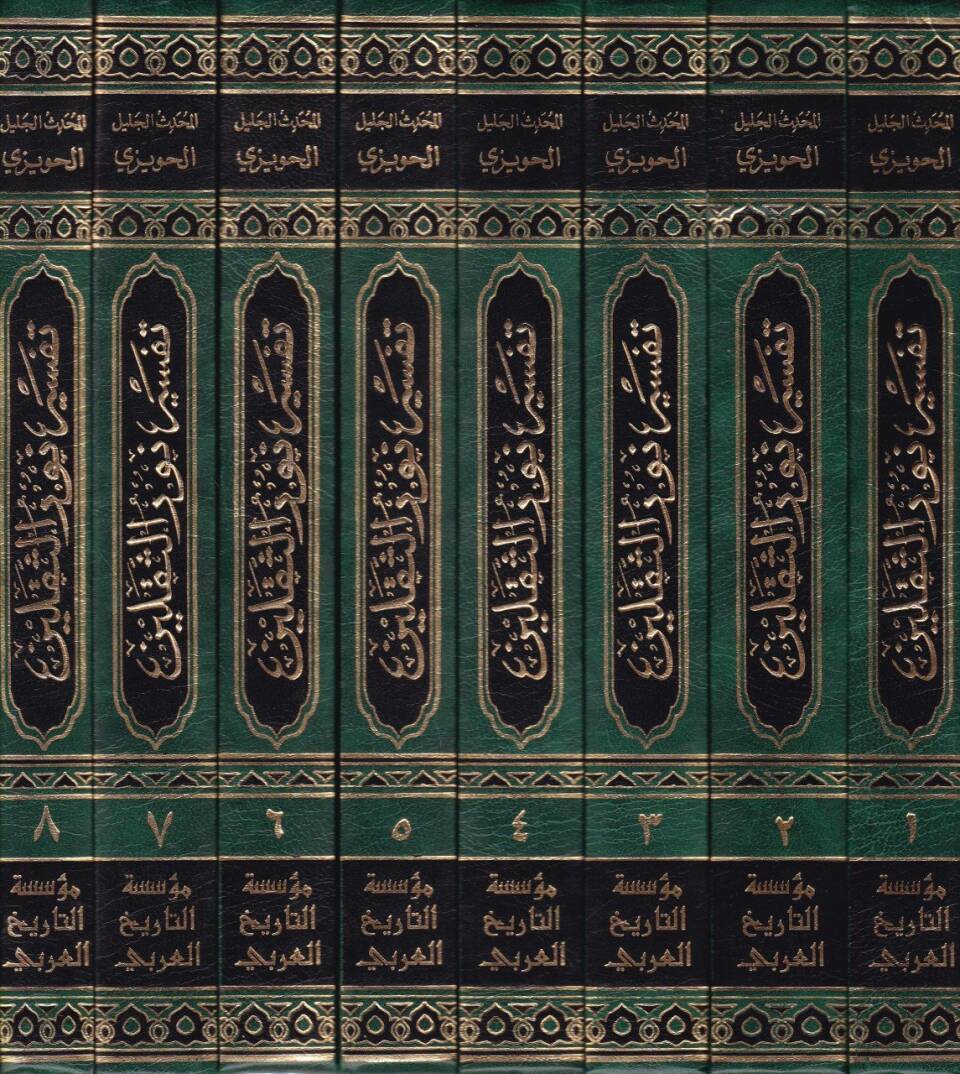 المحدث الجليل
الحويزي
تفسير نور الثقلين
١
مؤسسة
التاريخ
العربي
المحدث الجليل
الحويزي
تفسير نور الثقلين
٢
مؤسسة
التاريخ
العربي
المحدث الجليل
الحويزي
تفسير نور الثقلين
٣
مؤسسة
التاريخ
العربي
المحدث الجليل
الحويزي
تفسير نور الثقلين
٤
مؤسسة
التاريخ
العربي
المحدث الجليل
الحويزي
تفسير نور الثقلين
٥
مؤسسة
التاريخ
العربي
المحدث الجليل
الحويزي
تفسير نور الثقلين
٦
مؤسسة
التاريخ
العربي
المحدث الجليل
الحويزي
تفسير نور الثقلين
٧
مؤسسة
التاريخ
العربي
المحدث الجليل
الحويزي
تفسير نور الثقلين
٨
مؤسسة
التاريخ
العربي